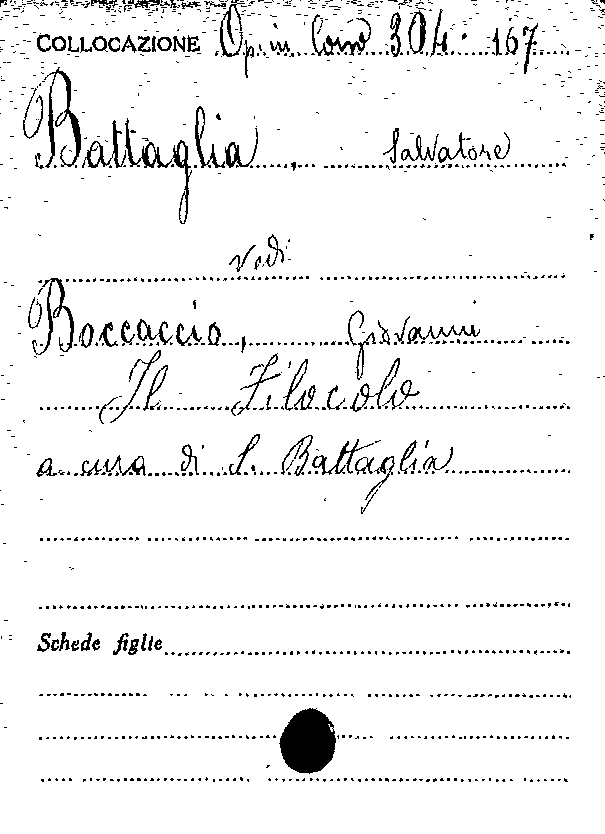 COLLOCAZIONE Op. in Cons 304. 167
Battaglia, Salvatore
Vedi
Boccaccio, Giovanni
Il Filocolo
a cura di S. Battaglia
Schede figlie